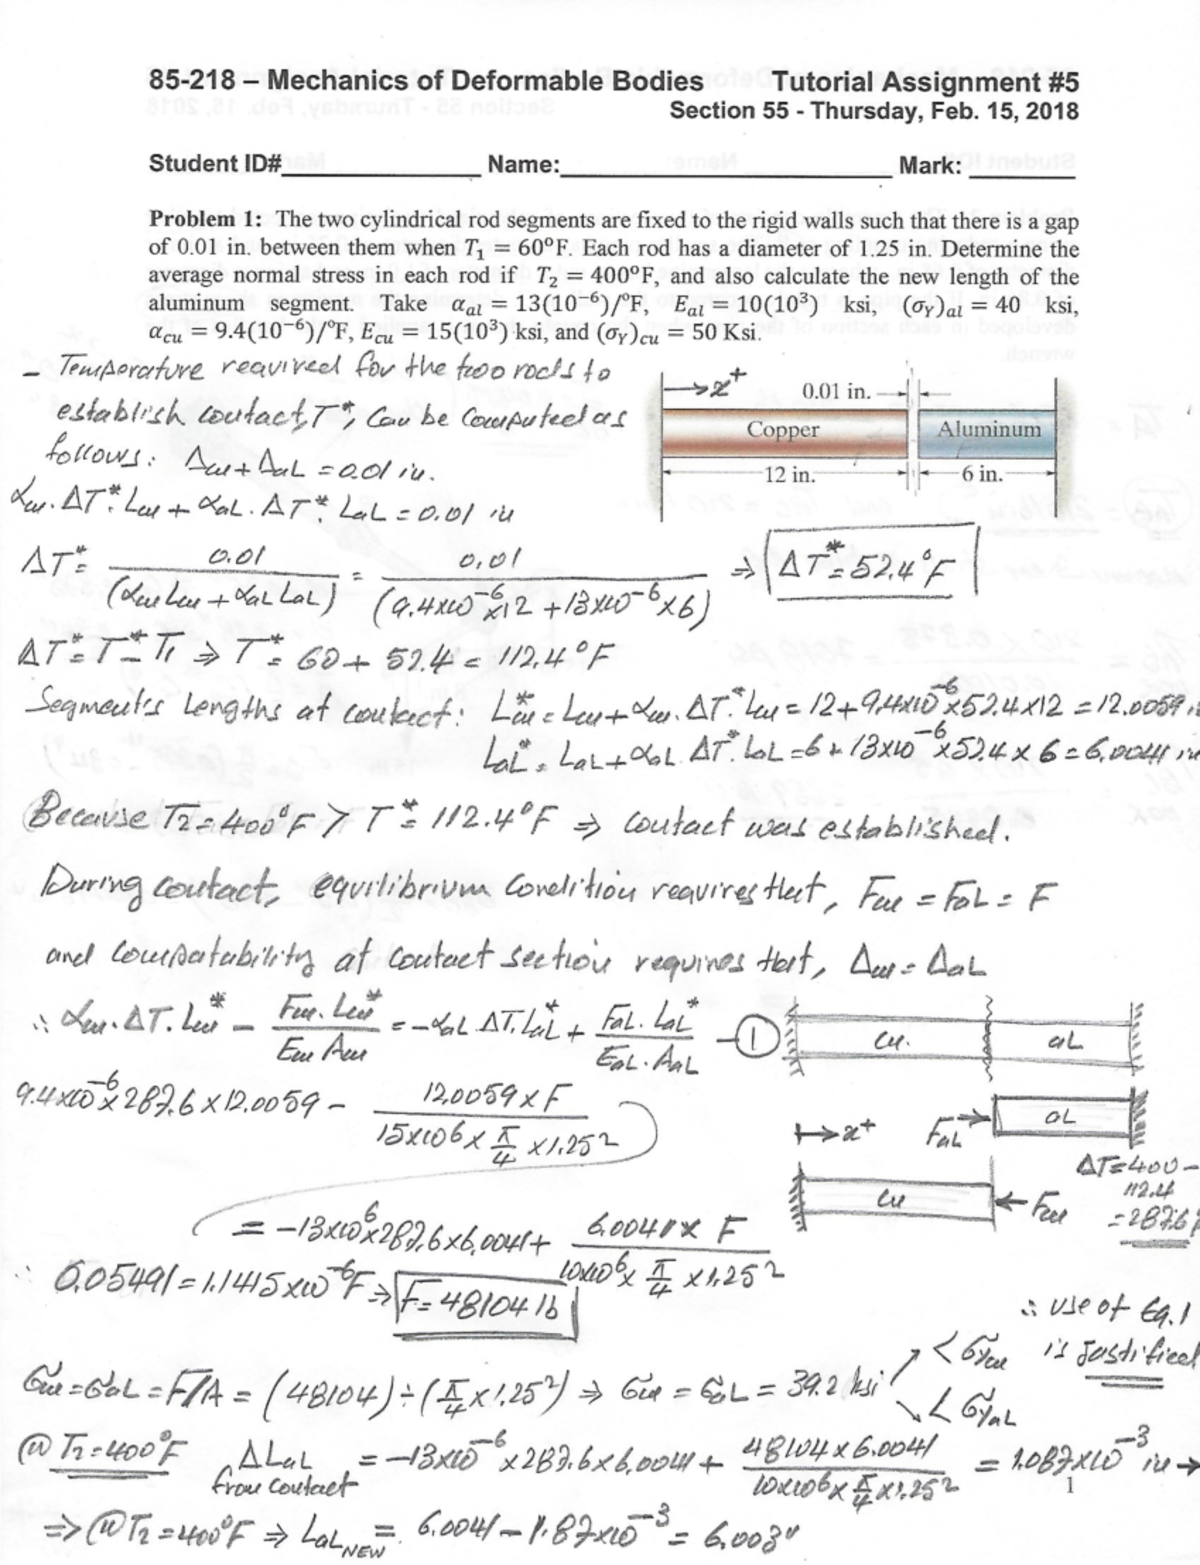 85-218 – Mechanics of Deformable Bodies Tutorial Assignment #5
Section 55 - Thursday, Feb. 15, 2018
Student ID#____________ Name:____________ Mark: ______
Problem 1: The two cylindrical rod segments are fixed to the rigid walls such that there is a gap
of 0.01 in. between them when T₁ = 60°F. Each rod has a diameter of 1.25 in. Determine the
average normal stress in each rod if T₂ = 400°F, and also calculate the new length of the
aluminum segment. Take αal = 13(10⁻⁶)/°F, Eal = 10(10³) ksi, (σY)al = 40 ksi,
αcu = 9.4(10⁻⁶)/°F, Ecu = 15(10³) ksi, and (σY)cu = 50 Ksi.
- Temperature required for the two rods to
establish contact, T*, can be computed as
follows: Δcu + ΔaL = 0.01 in.
αcu. ΔT*. Lcu + αaL. ΔT*. LaL = 0.01 in
→x+
0.01 in.
Copper
Aluminum
12 in.
6 in.
ΔT* = 0.01 / (αcu Lcu + αaL LaL) = 0.01 / (9.4x10⁻⁶x12 + 13x10⁻⁶x6) ⇒ ΔT* = 52.4°F
ΔT* = T* - T₁ ⇒ T* = 60 + 52.4 = 112.4°F
Segments Lengths at contact: Lcu* = Lcu + αcu. ΔT*. Lcu = 12 + 9.4x10⁻⁶x52.4x12 = 12.0059 in
LaL* = LaL + αaL. ΔT*. LaL = 6 + 13x10⁻⁶x52.4 x 6 = 6.0041 in
Because T₂ = 400°F > T* = 112.4°F ⇒ contact was established.
During contact, equilibrium condition requires that, Fcu = FaL = F
and compatability at contact section requires that, Δcu = ΔaL
∴ αcu. ΔT. Lcu* - Fcu. Lcu* / Ecu Acu = -αaL ΔT. LaL* + FaL. LaL* / EaL. AaL —①
cu.
aL
9.4x10⁻⁶x287.6x12.0059 - 12.0059xF / 15x10⁶x π/4 x1.25²
→x+
FaL
aL
ΔT=400-
112.4
=287.6F
cu
Fcu
= -13x10⁶x287.6x6.0041 + 6.0041x F / 10x10⁶x π/4 x1.25²
∴ 0.05491 = 1.1415x10⁻⁶F ⇒ F = 48104 lb
∴ use of Eq.1
is justified
σcu = σaL = F/A = (48104) ÷ (π/4 x1.25²) ⇒ σcu = σaL = 39.2 ksi
< σycu
< σyaL
@ T₂=400°F ΔLaL = -13x10⁻⁶ x287.6x6.0041 + 48104x6.0041 / 10x10⁶x π/4 x1.25² = 1.087x10⁻³ in →
from contact
1
⇒ @ T₂=400°F ⇒ LaL NEW = 6.0041 - 1.87x10⁻³ = 6.003"